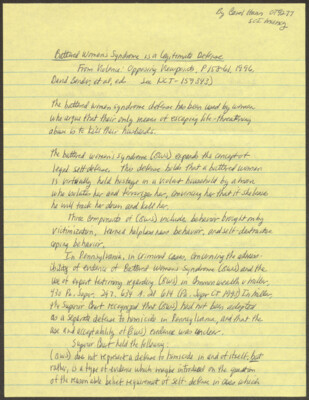 Battered Women's Syndrome is a Legitimate Defense
From Violence: Opposing Viewpoints, P 158-61, 1996.
David Bender, et al, ed.
The battered women syndrome defense has been used by women
who argue that their only means of escaping life-threatening
abuse is to kill their husbands.
The battered women's Syndrome (BWS) expands the concept of
legal self-defense. This defense holds that a battered woman
is virtually held hostage in a violent household by a man
who isolates her and terrorizes her, convincing her that if she leaves
he will track her down and kill her.
Three components of (BWS) include, behavior brought on by
victimization, learned helplessness behavior, and self-destructive
coping behavior.
In Pennsylvania, in criminal cases, concerning the admissi-
bility of evidence of Battered Women's Syndrome (BWS) and the
use of expert testimony regarding (BWS) in Commonwealth v. Miller,
430 Pa. Super. 297, 634 A. 2d 614 (Pa. Super Ct 1993) In Miller,
Pa Superior Court recognized that (BWS) had not been adopted
as a separate defense to homicide in Pennsylvania, and that the
use and acceptability of (BWS) evidence was unclear.
Superior Court held the following:
(BWS) does not represent a defense to homicide in and of itself; but
rather, is a type of evidence which may be introduced on the question
of the reasonable belief requirement of self-defense in cases which